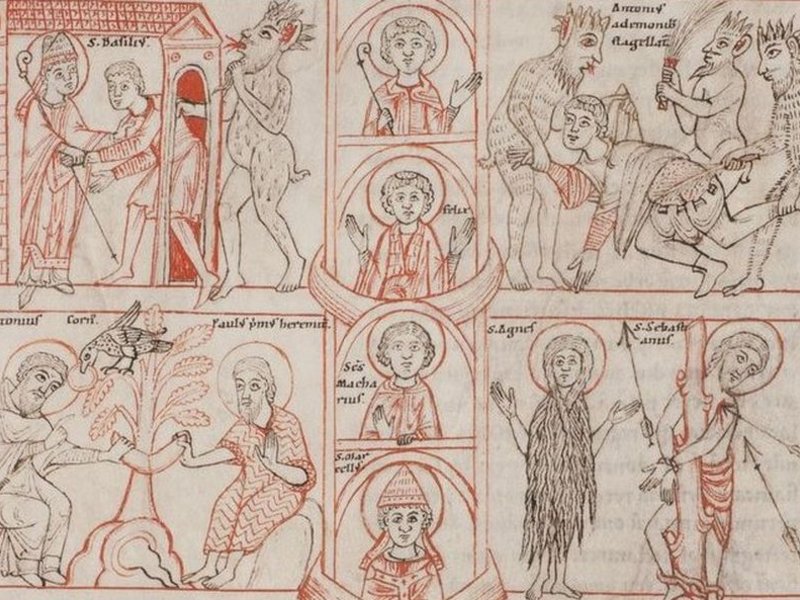 S. Basiliꝰ.
Antoniꝰ
ademonib
flagellat̅
felix
tonius
Corꝰ.
Paulꝰ p̅mꝰ heremit.
Sc̅s
Macha
rius.
S. Mar
cellꝰ
S. Agnes
S. Sebasti
anus.